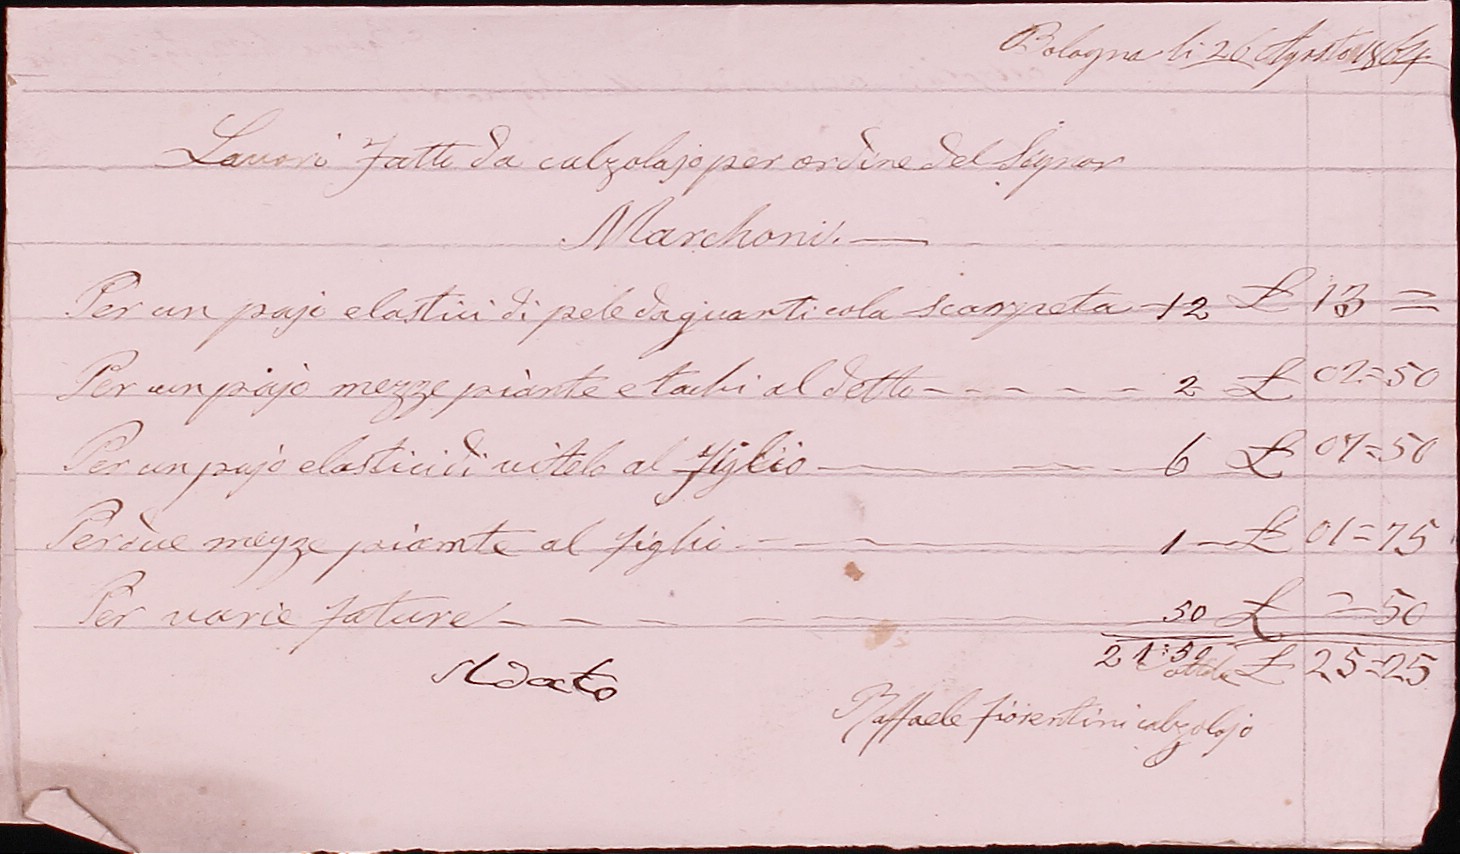 Bologna li 26 Agosto 1864
Lavori fatti da calzolajo per ordine del Signor
Marchoni. —
Per un pajo elastici di pele da guanti cola scarpeta — 12 £ 13 =
Per un pajo mezze piante e tachi al detto — — — — — 2 £ 02=50
Per un pajo elastici di vitelo al figlio — — — — 6 £ 07=50
Per due mezze piante al figlio — — — — 1 — £ 01=75
Per varie fature — — — — — 50 £ =50
21:50 £ 25=25
Saldato
Raffaele fiorentini calzolajo